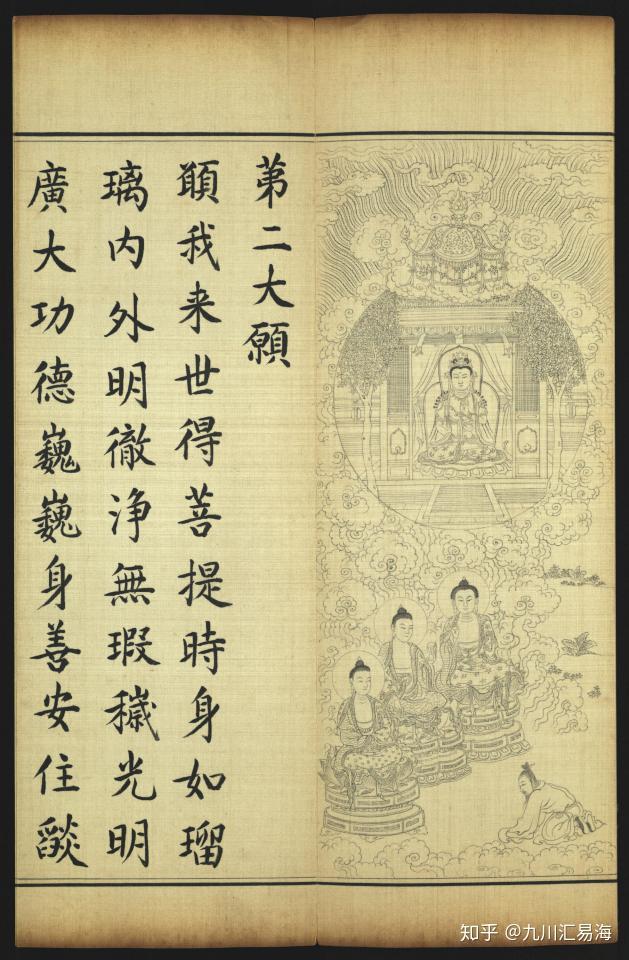 苐二大願
願我来世得菩提時身如瑠
璃内外明徹浄無瑕穢光明
廣大功德巍巍身善安住燄
知乎 @九川汇易海